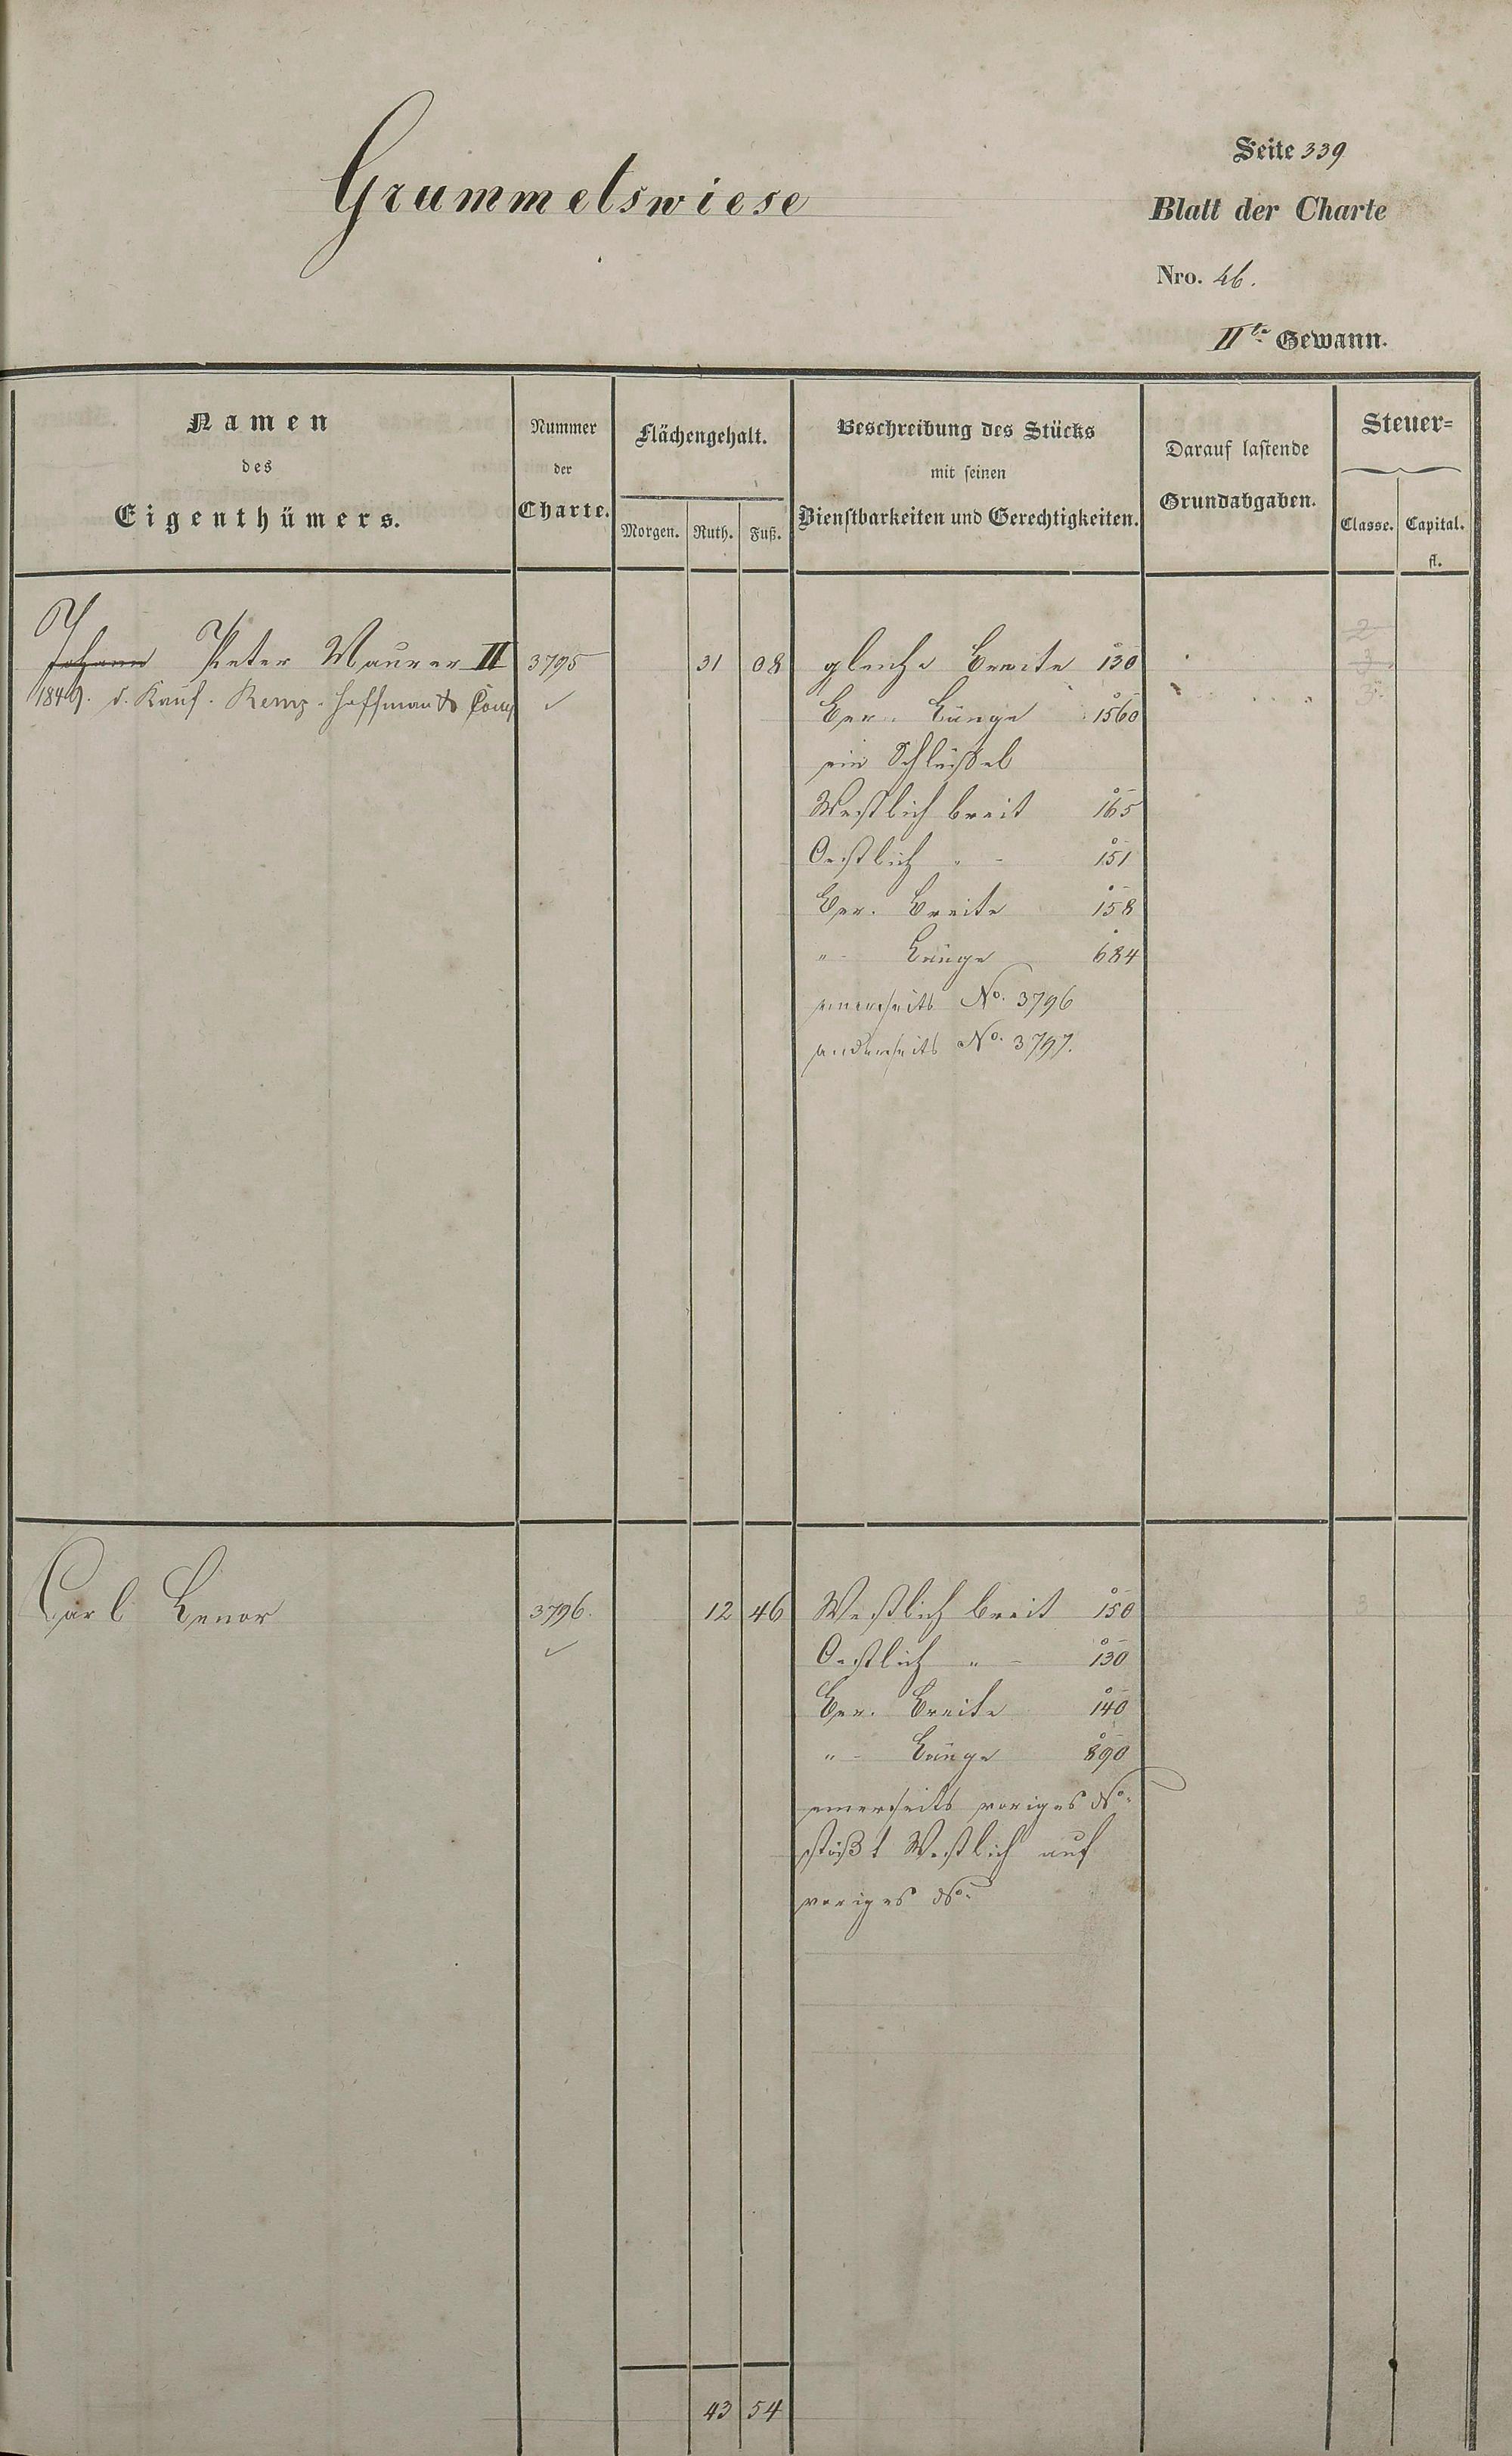 Grummetswiese
Seite 339
Blatt der Charte
Nro. 46.
IIte Gewann.
Namen
des
Eigenthümers.
Nummer
der
Charte.
Flächengehalt.
Morgen. Ruth. Fuß.
Beschreibung des Stücks
mit seinen
Dienstbarkeiten und Gerechtigkeiten.
Darauf lastende
Grundabgaben.
Steuer=
Classe. Capital.
fl.
Johann Peter Maurer II 3795 31 08 gleiche Breite 130
1849. d. Kauf. Remy. Hoffman & Comp
Ber. Länge 1560
ein Schlüssel
Westlich breit 165
Oestlich " - 151
Ber. Breite 158
" - Länge 684
einerseits No. 3796
anderseits No. 3797.
2
3
3
Carl Lenor 3796. 12 46 Westlich breit 150
3
Oestlich " - 130
Ber. Breite 140
" - Länge 890
einerseits voriges No.
stößt Westlich auf
voriges No.
43 54